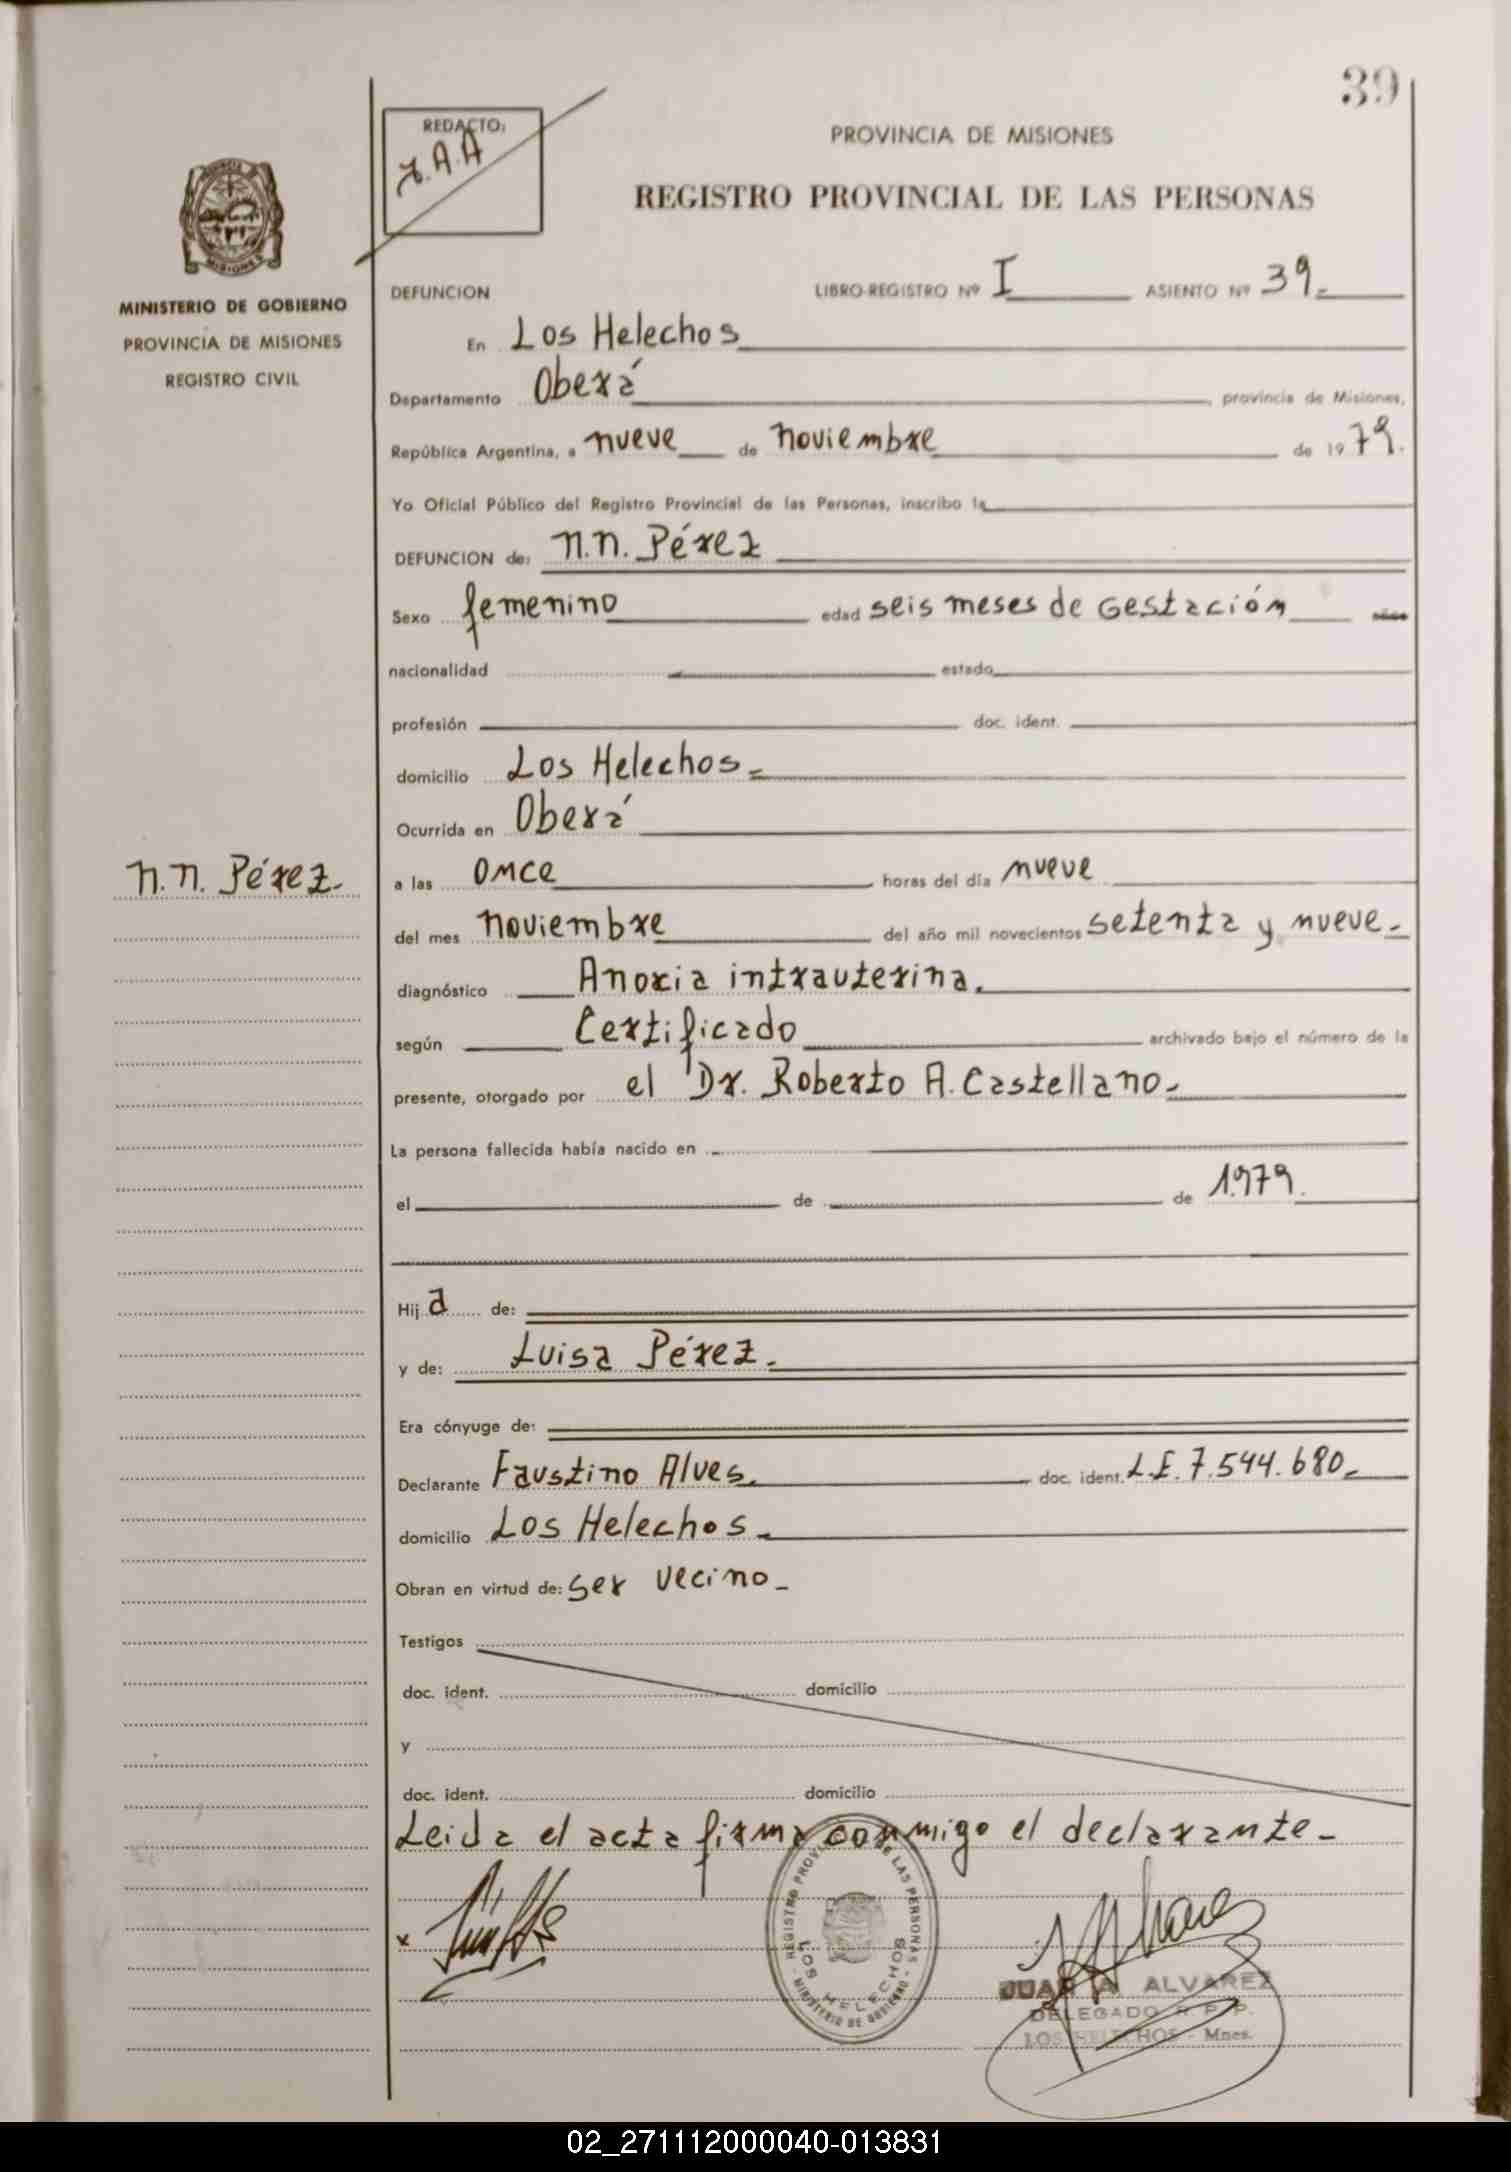 39
REDACTO:
J.A.A
PROVINCIA DE MISIONES
REGISTRO PROVINCIAL DE LAS PERSONAS
MISIONES
MINISTERIO DE GOBIERNO
PROVINCIA DE MISIONES
REGISTRO CIVIL
DEFUNCION LIBRO-REGISTRO Nº I ASIENTO Nº 39
En Los Helechos
Departamento Oberá, provincia de Misiones,
República Argentina, a nueve de noviembre de 1979.
Yo Oficial Público del Registro Provincial de las Personas, inscribo la
DEFUNCION de: n.n. Pérez
Sexo femenino edad seis meses de Gestación años
nacionalidad estado
profesión doc. ident.
domicilio Los Helechos
Ocurrida en Oberá
n.n. Pérez
a las once horas del día nueve
del mes noviembre del año mil novecientos setenta y nueve
diagnóstico Anoxia intrauterina.
según Certificado archivado bajo el número de la
presente, otorgado por el Dr. Roberto A. Castellano
La persona fallecida había nacido en
el de de 1.979.
Hij a de:
y de: Luisa Pérez.
Era cónyuge de:
Declarante Faustino Alves. doc. ident. L.E. 7.544.680
domicilio Los Helechos
Obran en virtud de: ser vecino
Testigos
doc. ident. domicilio
y
doc. ident. domicilio
Leida el acta firma conmigo el declarante
x
REGISTRO PROVINCIAL DE LAS PERSONAS
LOS HELECHOS
MINISTERIO DE GOBIERNO
JUAN A. ALVAREZ
DELEGADO R. P. P.
LOS HELECHOS - Mnes.
02_271112000040-013831